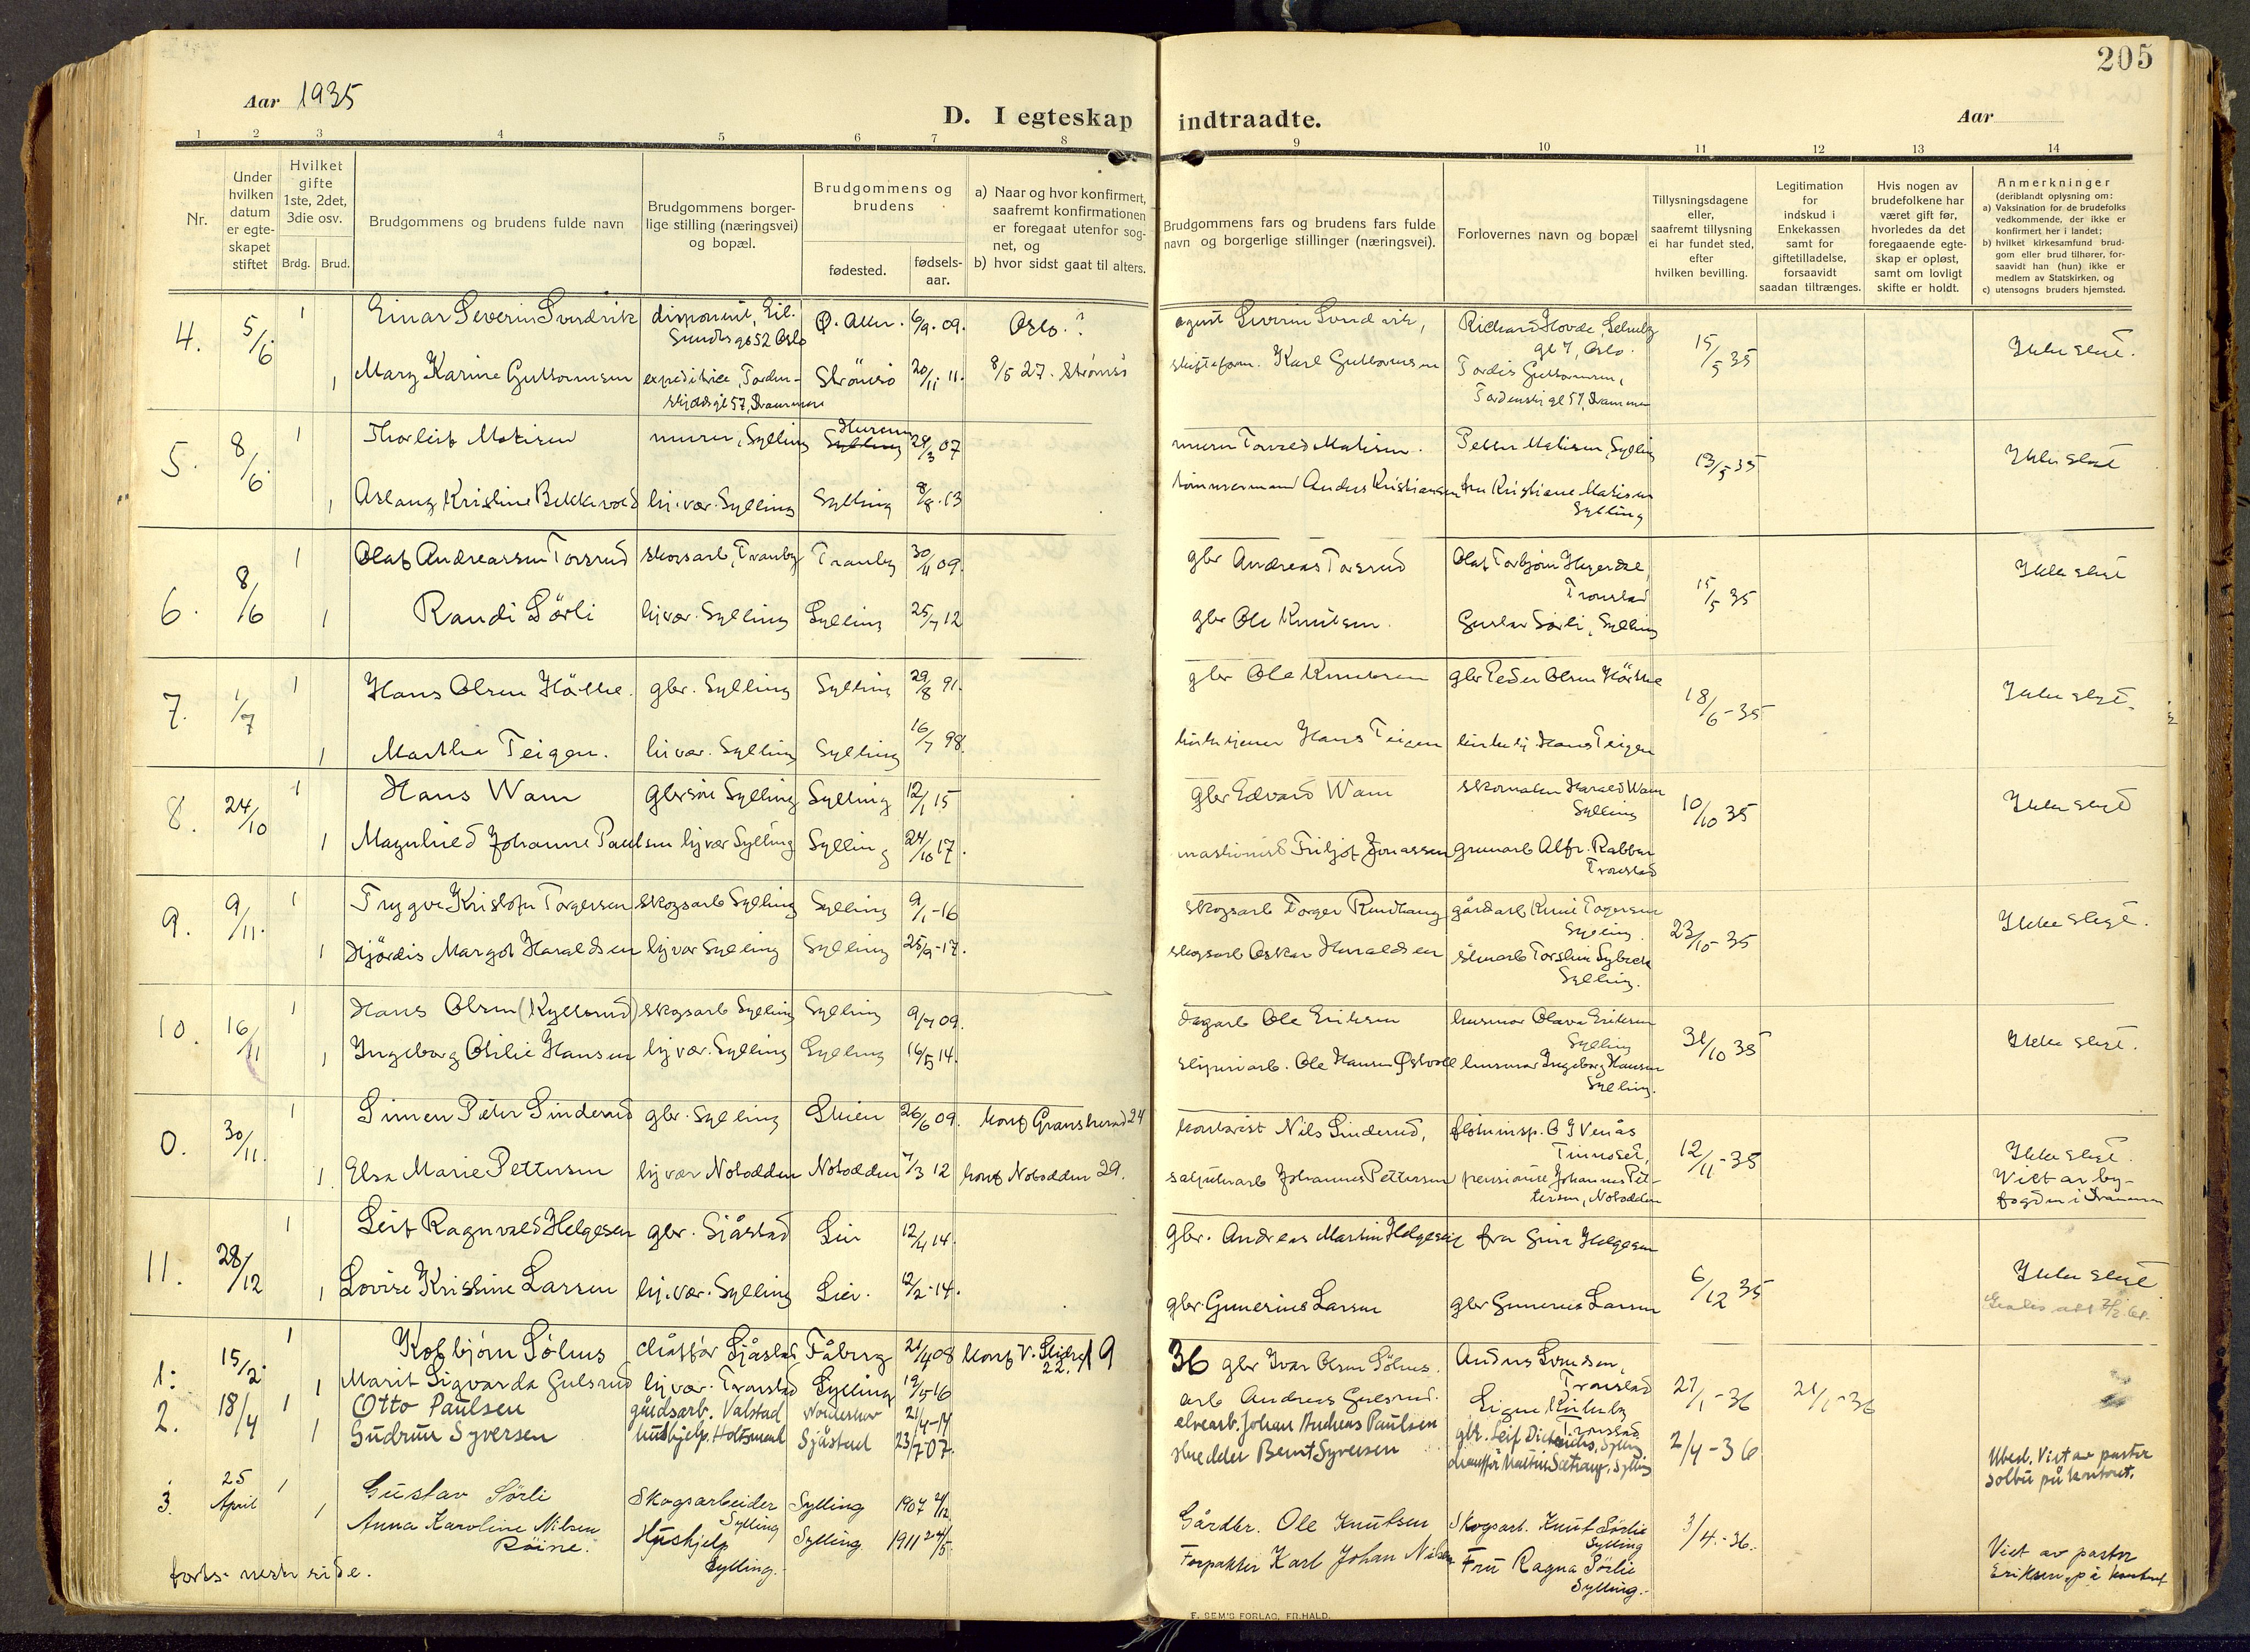 205
Aar 1935
D. I egteskap indtraadte.
Aar
1 2 3 4 5 6 7 8 9 10 11 12 13 14
Nr.
Under hvilken datum er egte- skapet stiftet
Hvilket gifte 1ste, 2det, 3die osv.
Brdg. Brud.
Brudgommens og brudens fulde navn
Brudgommens borger- lige stilling (næringsvei) og bopæl.
Brudgommens og brudens
fødested.
fødsels- aar.
a) Naar og hvor konfirmert, saafremt konfirmationen er foregaat utenfor sog- net, og
b) hvor sidst gaat til alters.
Brudgommens fars og brudens fars fulde navn og borgerlige stillinger (næringsvei).
Forlovernes navn og bopæl
Tillysningsdagene eller, saafremt tillysning ei har fundet sted, efter hvilken bevilling.
Legitimation for indskud i Enkekassen samt for giftetilladelse, forsaavidt saadan tiltrænges.
Hvis nogen av brudefolkene har været gift før, hvorledes da det foregaaende egte- skap er opløst, samt om lovligt skifte er holdt.
Anmerkninger (deriblandt oplysning om:
a) Vaksination for de brudefolks vedkommende, der ikke er konfirmert her i landet;
b) hvilket kirkesamfund brud- gom eller brud tilhører, for- saavidt han (hun) ikke er medlem av Statskirken, og
c) utensogns bruders hjemsted.
4. 5/6. 1 Einar Severin Svendvik disponent, Eil. Sundts gt 52 Oslo Ø. Aker. 6/9. 09. Oslo. ? agent Severin Svendvik, Richard Hovde, Schulz gt 7, Oslo. 15/5 35 Ikke slegt.
1 Mary Karine Guttormsen expeditrice, Torden- skjolds gt 57, Drammen Strømsø 20/11 11. 8/5 27. Strømsø Karl Guttormsen Tordis Guttormsen, Tordenskj gt 57, Drammen
5. 8/6. 1 Thorleif Matisen murer, Sylling Hurum 28/3 07 murer Torvald Matisen. Petter Matisen, Sylling 13/5 35 Ikke slegt
1 Aslaug Kristine Bekkevold hj. vær. Sylling Sylling 8/8. 13 tømmermand Anders Kristiansen fru Kristiane Matisen Sylling
6. 8/6 1 Olaf Andreassen Torsrud skogsarb, Tranby Tranby 30/11 09. gbr Andreas Torsrud Olaf Torbjørn Hegerdal, Tronstad 15/5 35 Ikke slegt
1 Randi Sörli hj vær. Sylling Sylling 25/7 12 gbr Ole Knutsen. Gustav Sörli, Sylling
7. 1/7 1 Hans Olsen Hörthe. gbr. Sylling Sylling 29/8 91. gbr Ole Knutsen gbr Peder Olsen Hörthe 18/6-35 Ikke slegt.
1 Martha Teigen. hj vær. Sylling Sylling 16/7 98. kirketjener Hans Teigen kirketj Hans Teigen
8. 24/10 1 Hans Wam gbrsøn Sylling Sylling 12/1 15 gbr Edvard Wam skomaker Harald Wam Sylling 10/10 35 Ikke slegt
1 Magnhild Johanne Paulsen hj vær Sylling Sylling 24/10 17. maskinist Fritjof Jonassen gruvearb Alfr. Rabben Tronstad
9. 9/11. 1 Trygve Kristofer Torgersen skogsarb Sylling Sylling 9/1-16 skogsarb Torger Rundtang gårdarb Knut Torgersen Sylling. 23/10-35 Ikke slegt.
1 Hjördis Margot Haraldsen hj vær Sylling Sylling 25/9-17. skogsarb Oskar Haraldsen Sylling.
10. 16/11 1 Hans Olsen (Kyllerud) skogsarb Sylling Sylling 9/7 09. dagarb Ole Eriksen husmor Olava Eriksen Sylling 31/10 35 Ikke slegt.
1 Ingeborg Otilie Hansen hj vær. Sylling Sylling 16/5 14. sliperiarb. Ole Hansen Østvold husmor Ingeborg Hansen Sylling.
0. 30/11. 1 Simen Peter Sinderud gbr. Sylling Skien 26/6 09. konf Gransherad 24 kontorist Nils Sinderud, fløtn.insp. O J Venås Tinnoset, 12/11-35 Ikke slegt. Viet av by- fogden i Drammen
1. Elsa Marie Pettersen hj vær Notodden Notodden 7/3 12 konf Notodden 29. salpeterarb Johannes Pettersen pensionist Johannes Pet- tersen, Notodden
11. 28/12 1 Leif Ragnvald Helgesen gbr. Sjåstad Lier 12/4 14. gbr. Andreas Martin Helgesen fru Gina Helgesen 6/12 35 Ikke slegt
1 Lovise Kristine Larsen hj. vær. Sylling Lier. 12/2-14. gbr. Gunerius Larsen gbr Gunerius Larsen
1936
1. 15/2. 1 Kolbjørn Sølnes chåffør Sjåstad Fåberg 21/4 08 konf V. Slidre 22. gbr Ivar Olsen Sølnes. Anders Svendsen, Tronstad 27/1-36 21/1-36
1 Marit Sigvarda Gulsrud hj vær. Tronstad Sylling 19/5 16 arb Andreas Gulsrud. Signe Tronstad
2. 18/4 1 Otto Paulsen gårdsarb. Valstad Norderhov 21/4-14 elvearb. Johan Andreas Paulsen gbr. Leif Diderichs, Sylling 2/4-36 Ubesl. Viet av pastor Solbu på kontoret.
1 Gudrun Syversen hushjelp. Holtsmark Sjåstad 23/7-07. skredder Bernt Syversen chauffør Martin Sætrang, Sylling
3. 25 April 1 Gustav Sörli Skogsarbeider Sylling Sylling 1907 2/12. Gårdbr. Ole Knutsen Skogsarb. Knut Sörlie Sylling 3/4.-36. Viet av pastor Eriksen på kontoret
1 Anna Karoline Nilsen Röine. Hushjelp Sylling. Sylling 1911 24/5. Forpakter Karl Johan Nilsen Fru Ragna Sörlie Sylling.
forts. neste side.
F. SEM'S FORLAG, FR.HALD.